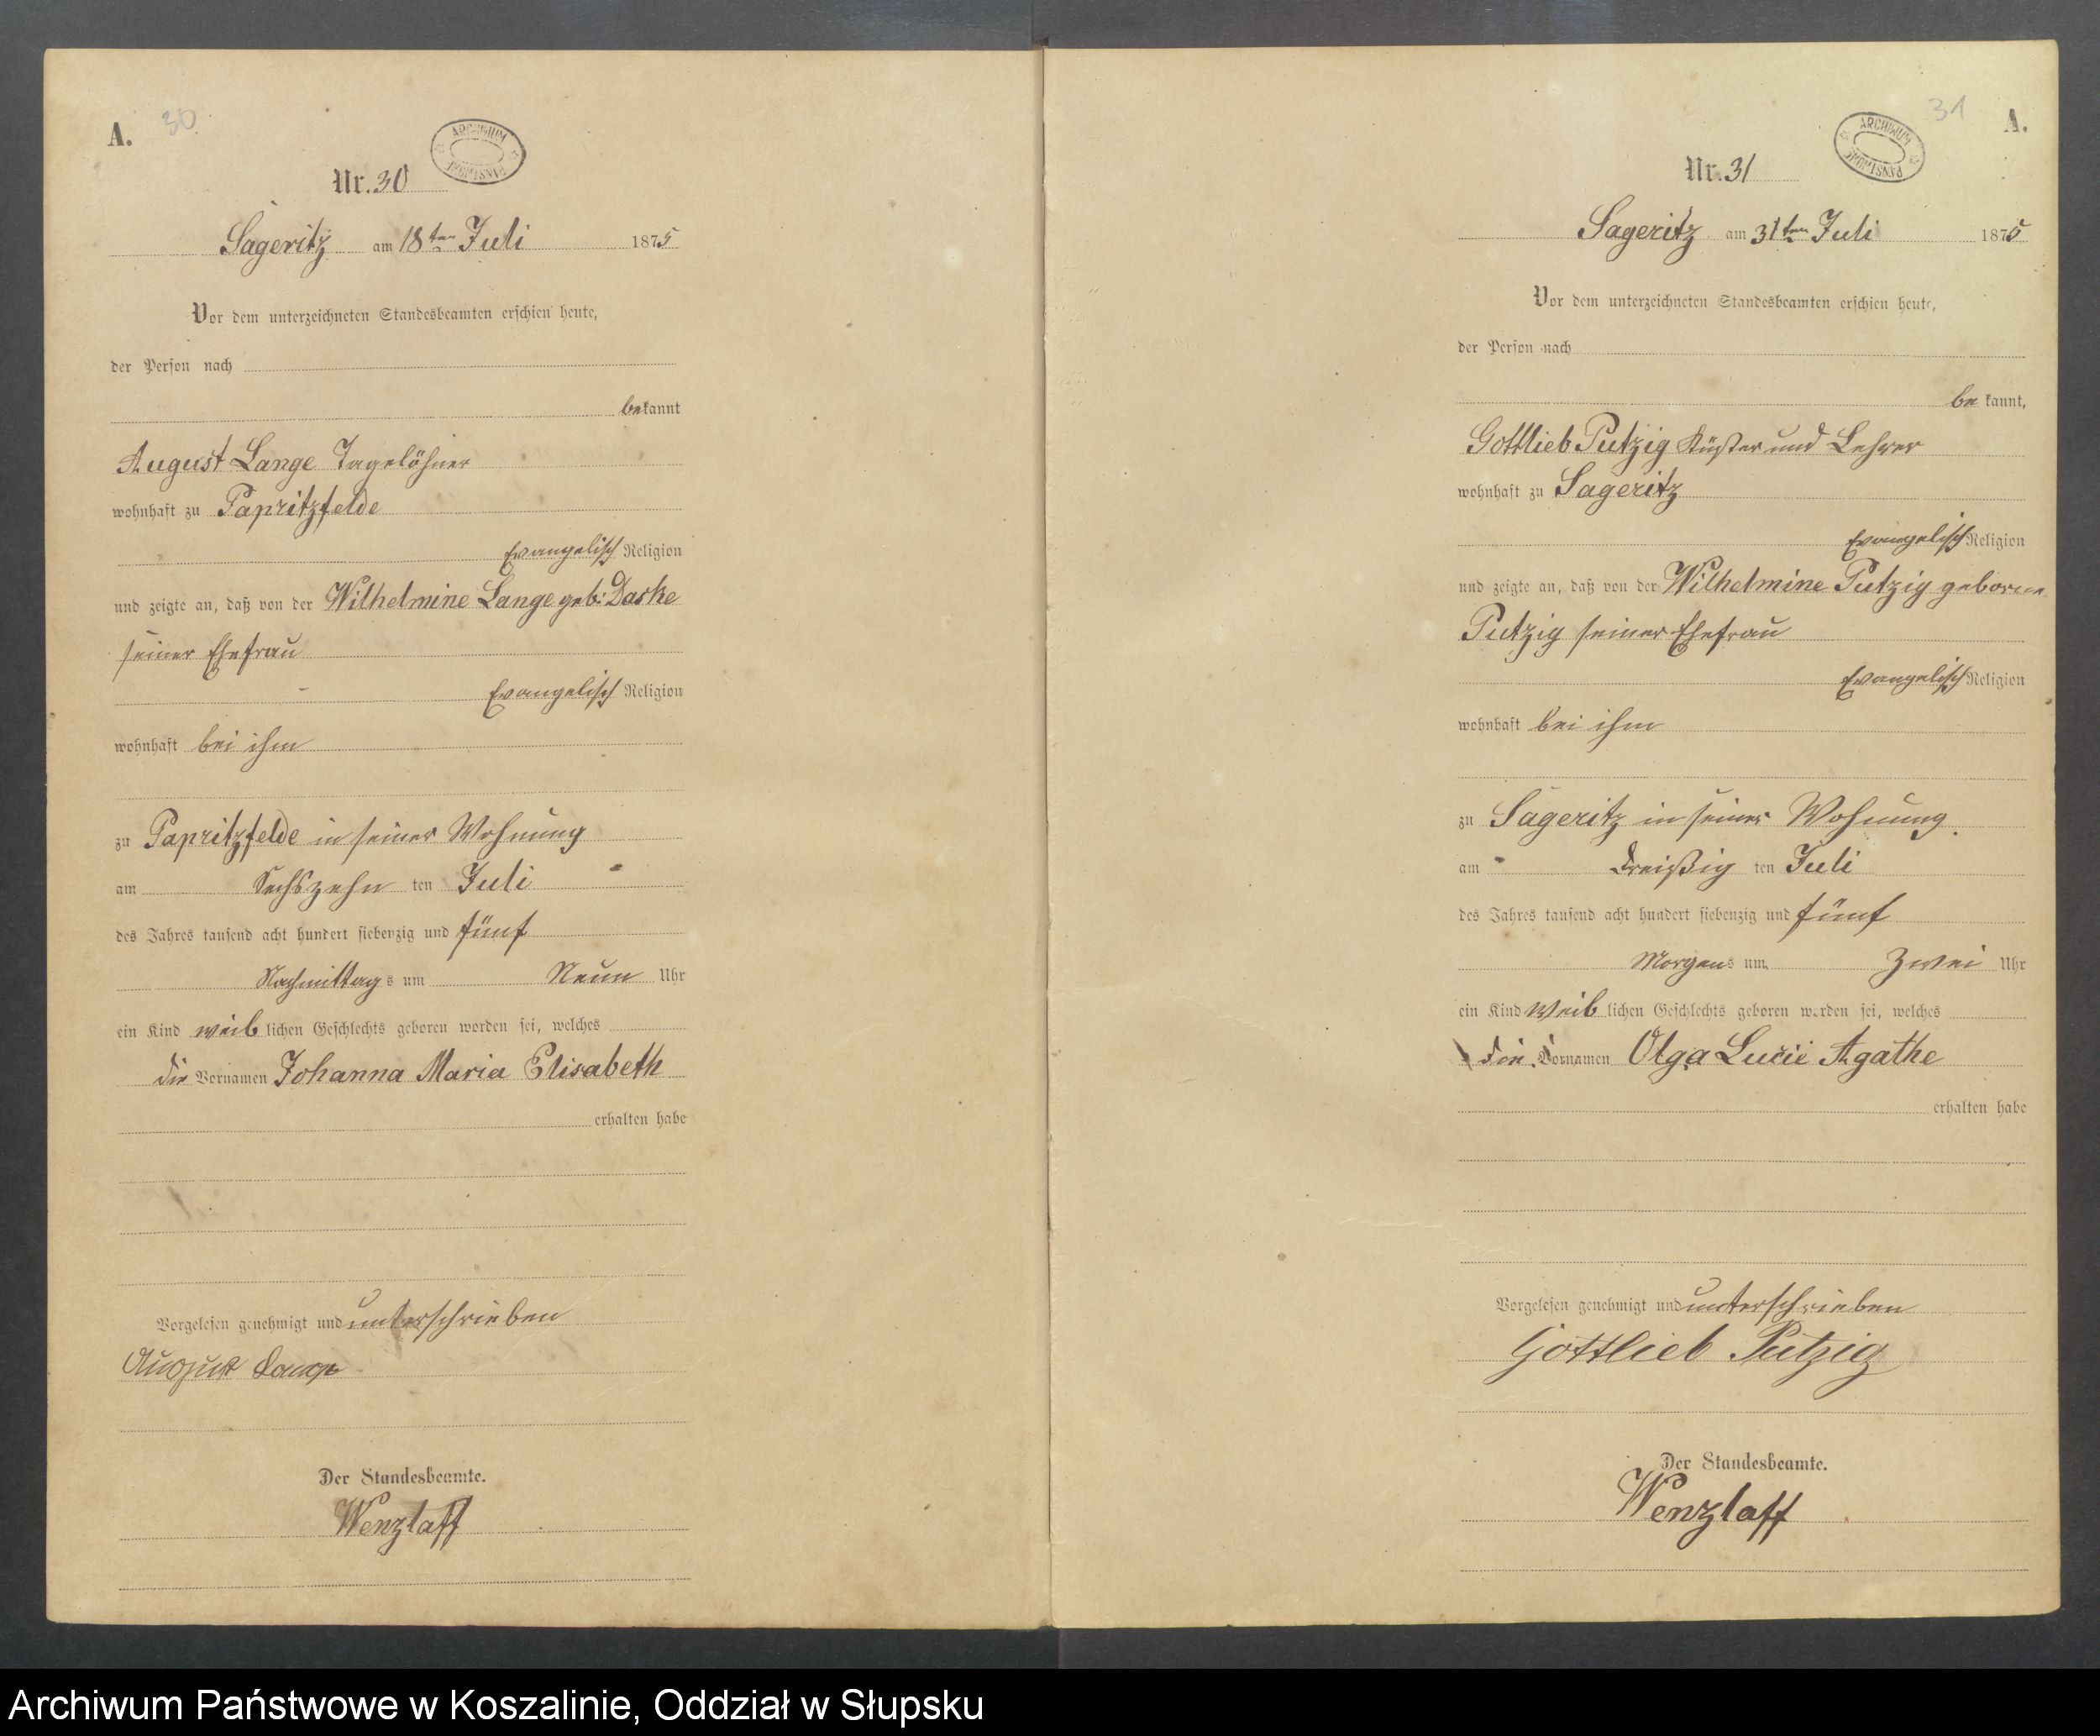 A. 30
ARCHIWUM PAŃSTWOWE
Nr. 30
Sageritz am 18ten Juli 1875
Vor dem unterzeichneten Standesbeamten erschien heute,
der Person nach
bekannt
August Lange Tagelöhner
wohnhaft zu Papritzfelde
Evangelisch Religion
und zeigte an, daß von der Wilhelmine Lange geb: Daske
seiner Ehefrau
Evangelisch Religion
wohnhaft bei ihm
zu Papritzfelde in seiner Wohnung
am Sechszehn ten Juli
des Jahres tausend acht hundert siebenzig und fünf
Nachmittags um Neun Uhr
ein Kind weiblichen Geschlechts geboren worden sei, welches
die Vornamen Johanna Maria Elisabeth
erhalten habe
Vorgelesen genehmigt und unterschrieben
August Lange
Der Standesbeamte.
Wenzlaff
31 A.
ARCHIWUM PAŃSTWOWE
Nr. 31
Sageritz am 31ten Juli 1875
Vor dem unterzeichneten Standesbeamten erschien heute,
der Person nach
bekannt,
Gottlieb Putzig Küster und Lehrer
wohnhaft zu Sageritz
Evangelisch Religion
und zeigte an, daß von der Wilhelmine Putzig geborne
Putzig seiner Ehefrau
Evangelisch Religion
wohnhaft bei ihm
zu Sageritz in seiner Wohnung
am Dreißig ten Juli
des Jahres tausend acht hundert siebenzig und fünf
Morgens um Zwei Uhr
ein Kind weiblichen Geschlechts geboren worden sei, welches
die Vornamen Olga Lucie Agathe
erhalten habe
Vorgelesen genehmigt und unterschrieben
Gottlieb Putzig
Der Standesbeamte.
Wenzlaff
Archiwum Państwowe w Koszalinie, Oddział w Słupsku